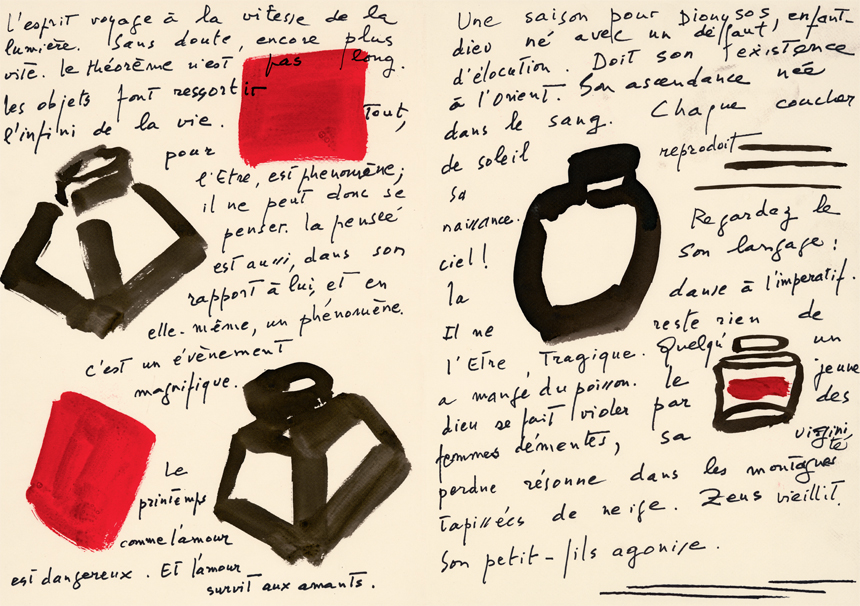 L'esprit voyage à la vitesse de la
lumière. Sans doute, encore plus
vite. Le théorème n'est pas long.
Les objets font ressortir
l'infini de la vie. Tout,
pour
l'Etre, est phénomène;
il ne peut donc se
penser. La pensée
est aussi, dans son
rapport à lui, et en
elle-même, un phénomène.
c'est un évènement
magnifique.
Le
printemps
comme l'amour
est dangereux. Et l'amour
survit aux amants.
Une saison pour Dionysos, enfant-
dieu né avec un défaut,
d'élocution. Doit son existence
à l'Orient. Son ascendance née
dans le sang. Chaque coucher
de soleil reproduit
sa
naissance. Regardez le
ciel! Son langage:
la danse à l'imperatif.
Il ne reste rien de
l'Etre Tragique. Quelqu' un
a mangé du poisson. Le jeune
dieu se fait violer par des
femmes démentes, sa virgini
té
perdue résonne dans les montagnes
tapissées de neige. Zeus vieillit.
Son petit-fils agonise.